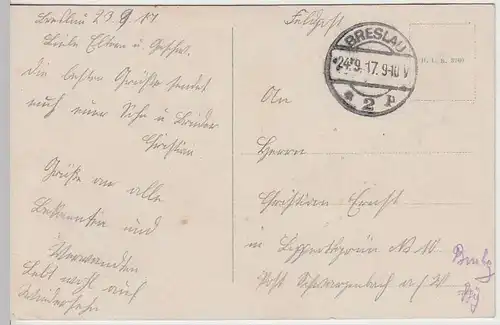 Breslau 23 9 17
Liebe Eltern u. Geschw.
die besten Grüße sendet
euch euer Sohn u Bruder
Christian
Grüße an alle
Bekannten und
Verwandten
Lebt wohl auf
Wiedersehn
Feldpost
BRESLAU
24.9.17.9-10 V
* 2 p
An
Herrn
Christian Ernst
in Lippertsgrün N 10
Post Schwarzenbach a/ W
By